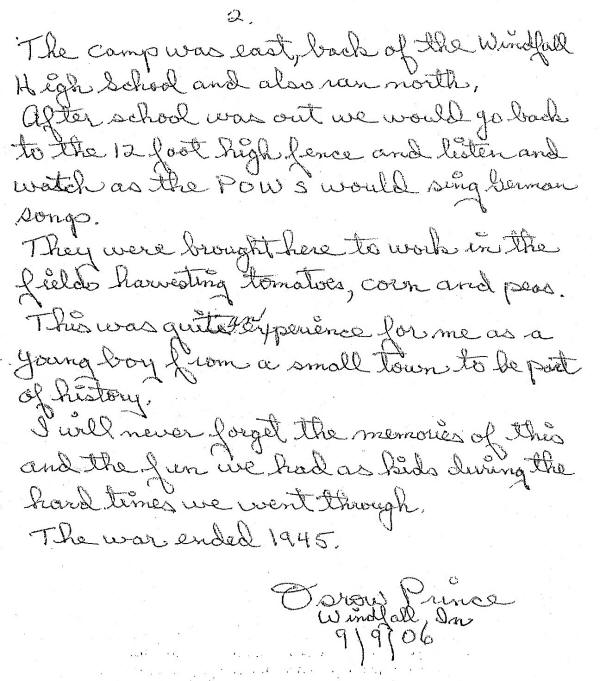 2.
The camp was east, back of the Windfall
High School and also ran north,
After school was out we would go back
to the 12 foot high fence and listen and
watch as the POW s would sing German
songs.
They were brought here to work in the
fields harvesting tomatoes, corn and peas.
This was quite an experience for me as a
young boy from a small town to be part
of history.
I will never forget the memories of this
and the fun we had as kids during the
hard times we went through.
The war ended 1945.
Osrow Prince
Windfall, In
9/9/06